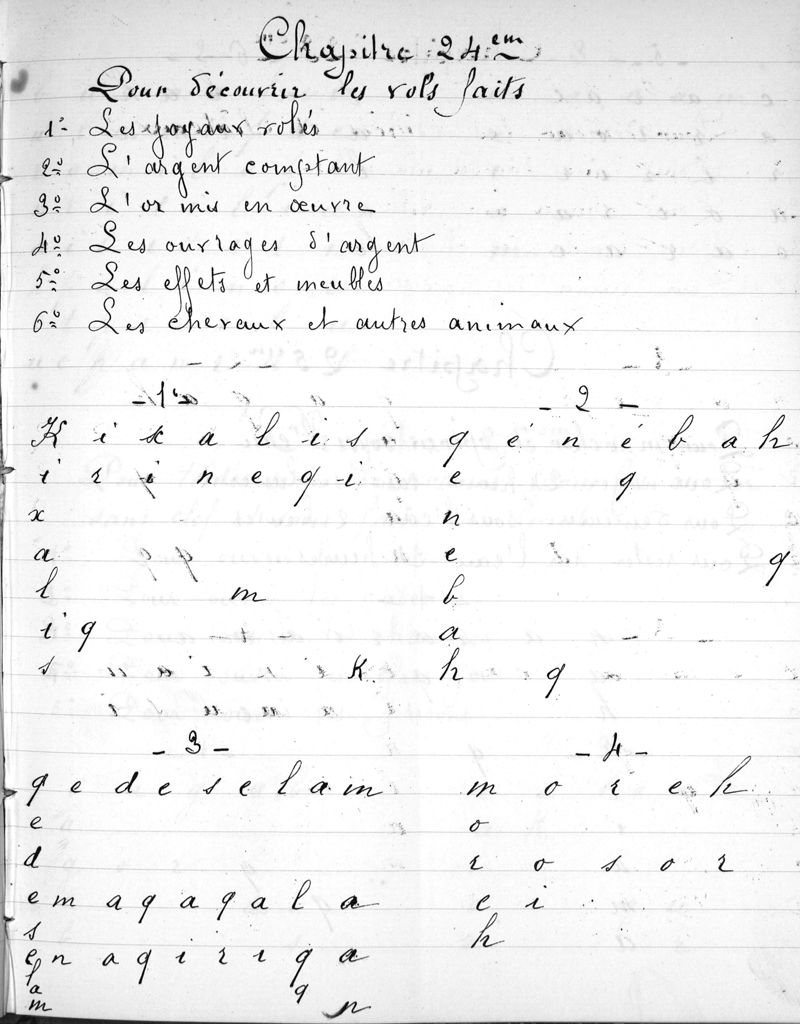 Chapitre 24em
Pour découvrir les vols faits
1º Les joyaux volés
2º L'argent comptant
3º L'or mis en œuvre
4º Les ouvrages d'argent
5º Les effets et meubles
6º Les chevaux et autres animaux
- 1 -
K i x a l i s
i r i n e q i
x
a
l m
i q
s K
- 2 -
q é n é b a h
e q i
n
e q
b
a
h q
- 3 -
q e d e s e l a m
e
d
e m a q a q a l a
s
e n a q i r i q a
l
a q
m n
- 4 -
m o r e h
o
r o s o r
e i
h